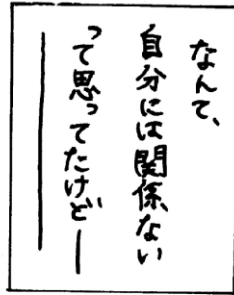 なんて、
自分には関係ない
って思ってたけど――